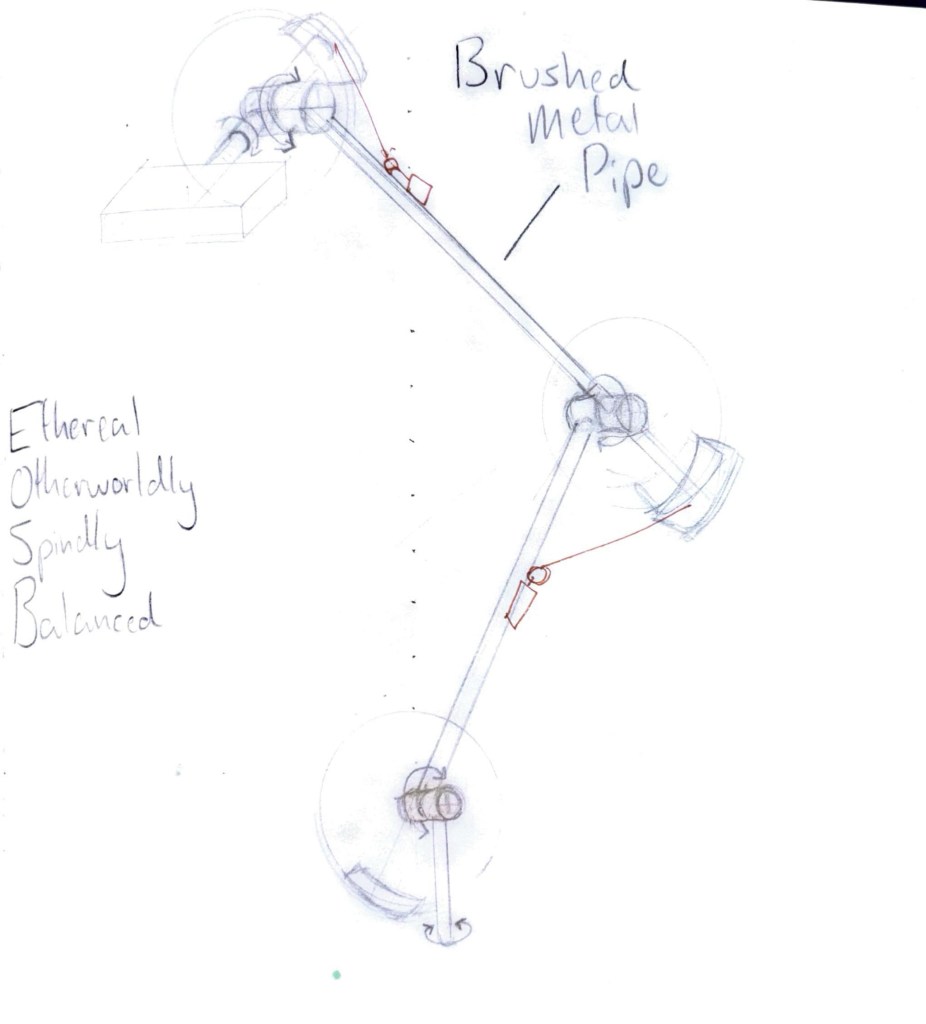 Brushed
Metal
Pipe
Ethereal
Otherworldly
Spindly
Balanced